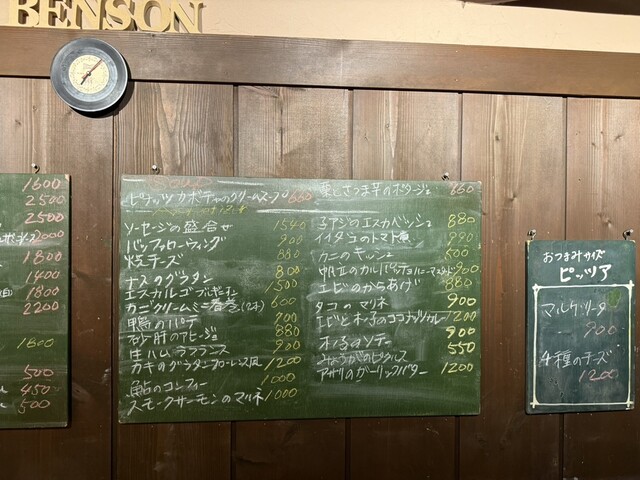 BENSON
1600
2500
2500
2000
1800
1400
1800
2200
1800
500
450
500
Soup
ピナッツカボチャのクリームスープ 660
ソーセージの盛合せ 1540
バッファローウィング 900
焼チーズ 880
ナスのグラタン 800
エスカルゴ ブルギニオン 1500
カニクリームミニ春巻(2本) 600
鴨のパテ 900
砂肝のアヒージョ 880
生ハム ラフランス 900
カキのグラタンフローレンス風 1200
鮎のコンフィー 1000
スモークサーモンのマリネ 1000
栗とさつま芋のポタージュ 660
子アジのエスカベッシュ 880
イイダコのトマト煮 990
カニのキッシュ 500
900
エビのからあげ 880
タコのマリネ 900
エビと木ノ子のココナッツカレー 1200
木ノ子のソテー 900
みょうがのピクルス 550
アサリのガーリックバター 1200
おつまみサイズ
ピッツア
マルゲリータ
900
4種のチーズ
1200